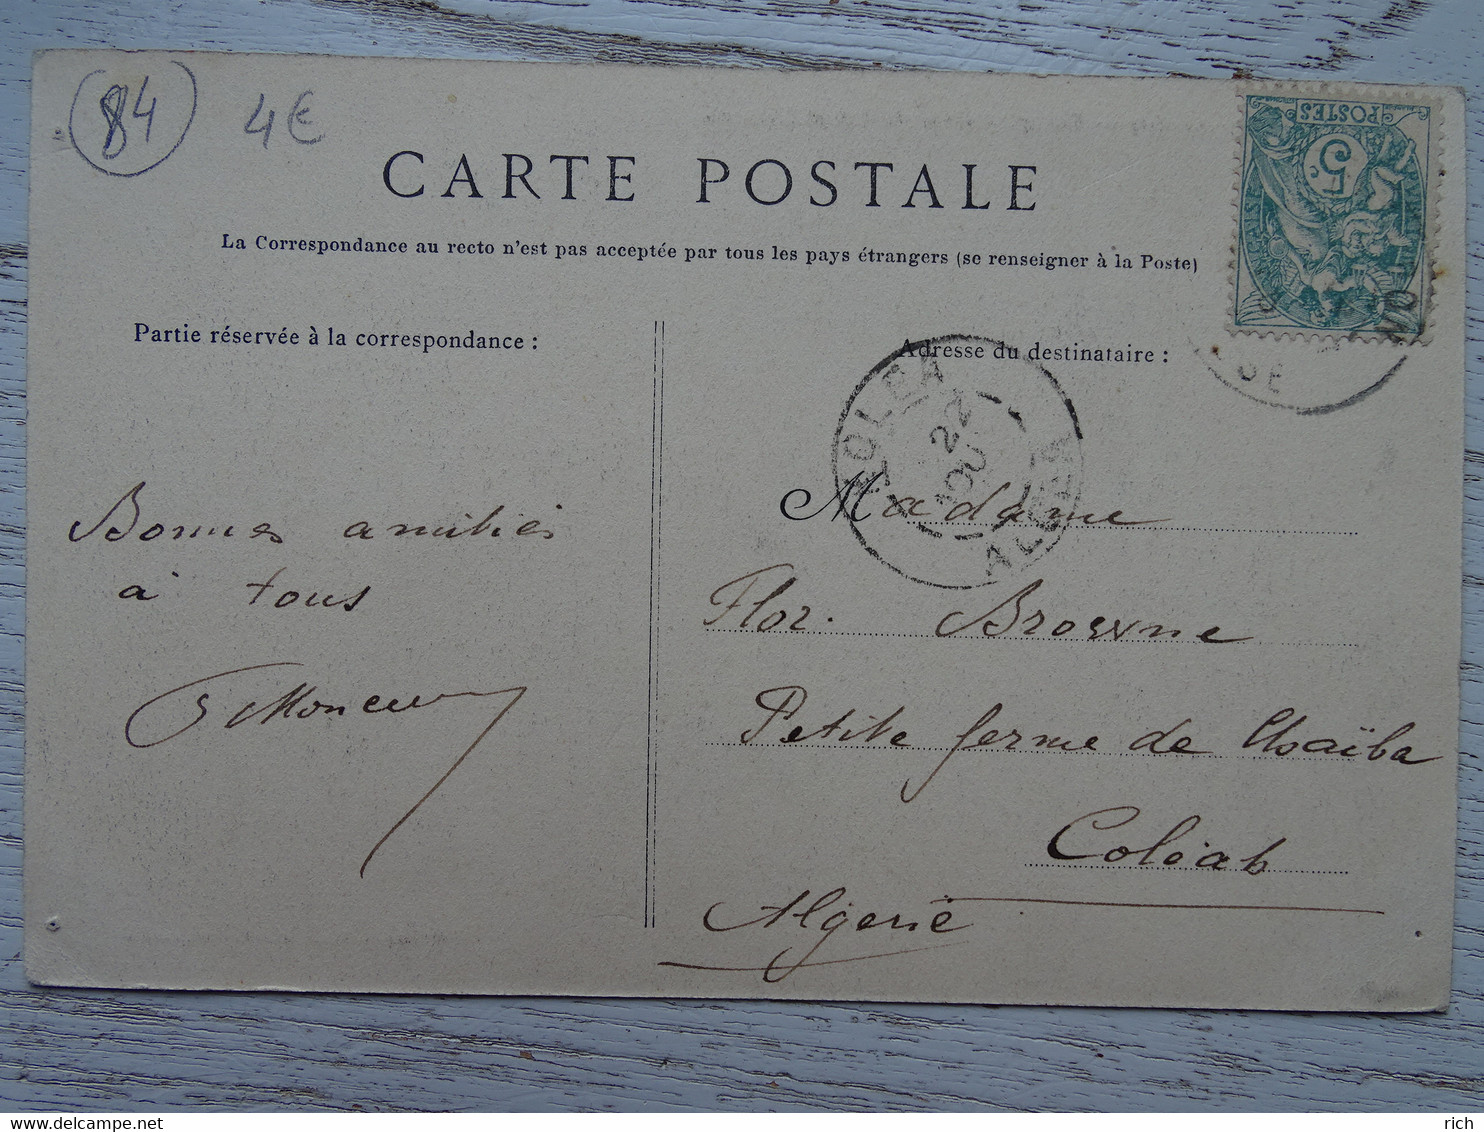 84
4€
CARTE POSTALE
La Correspondance au recto n'est pas acceptée par tous les pays étrangers (se renseigner à la Poste)
POSTES
5c
Partie réservée à la correspondance :
Bonnes amitiés
à tous
Adresse du destinataire :
KOLEA
22
AOU
ALGER
Madame
Flor. Browne
Petite ferme de Chaïba
Coléah
Algerie
www.delcampe.net
rich